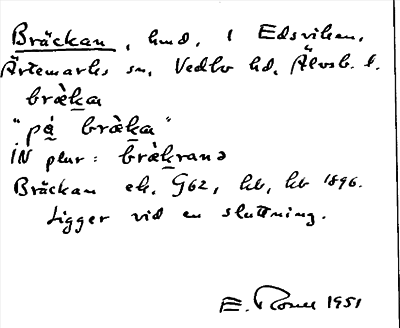 Bräckan, hmd, i Edsviken,
Ärtemarks sn, Vedbo hd, Älvsb. l.
bræ̀ka
"på bræ̀ka"
IN plur: bræ̀kranə
Bräckan ek. G62, kb, kb 1896.
Ligger vid en sluttning.
E. 1951